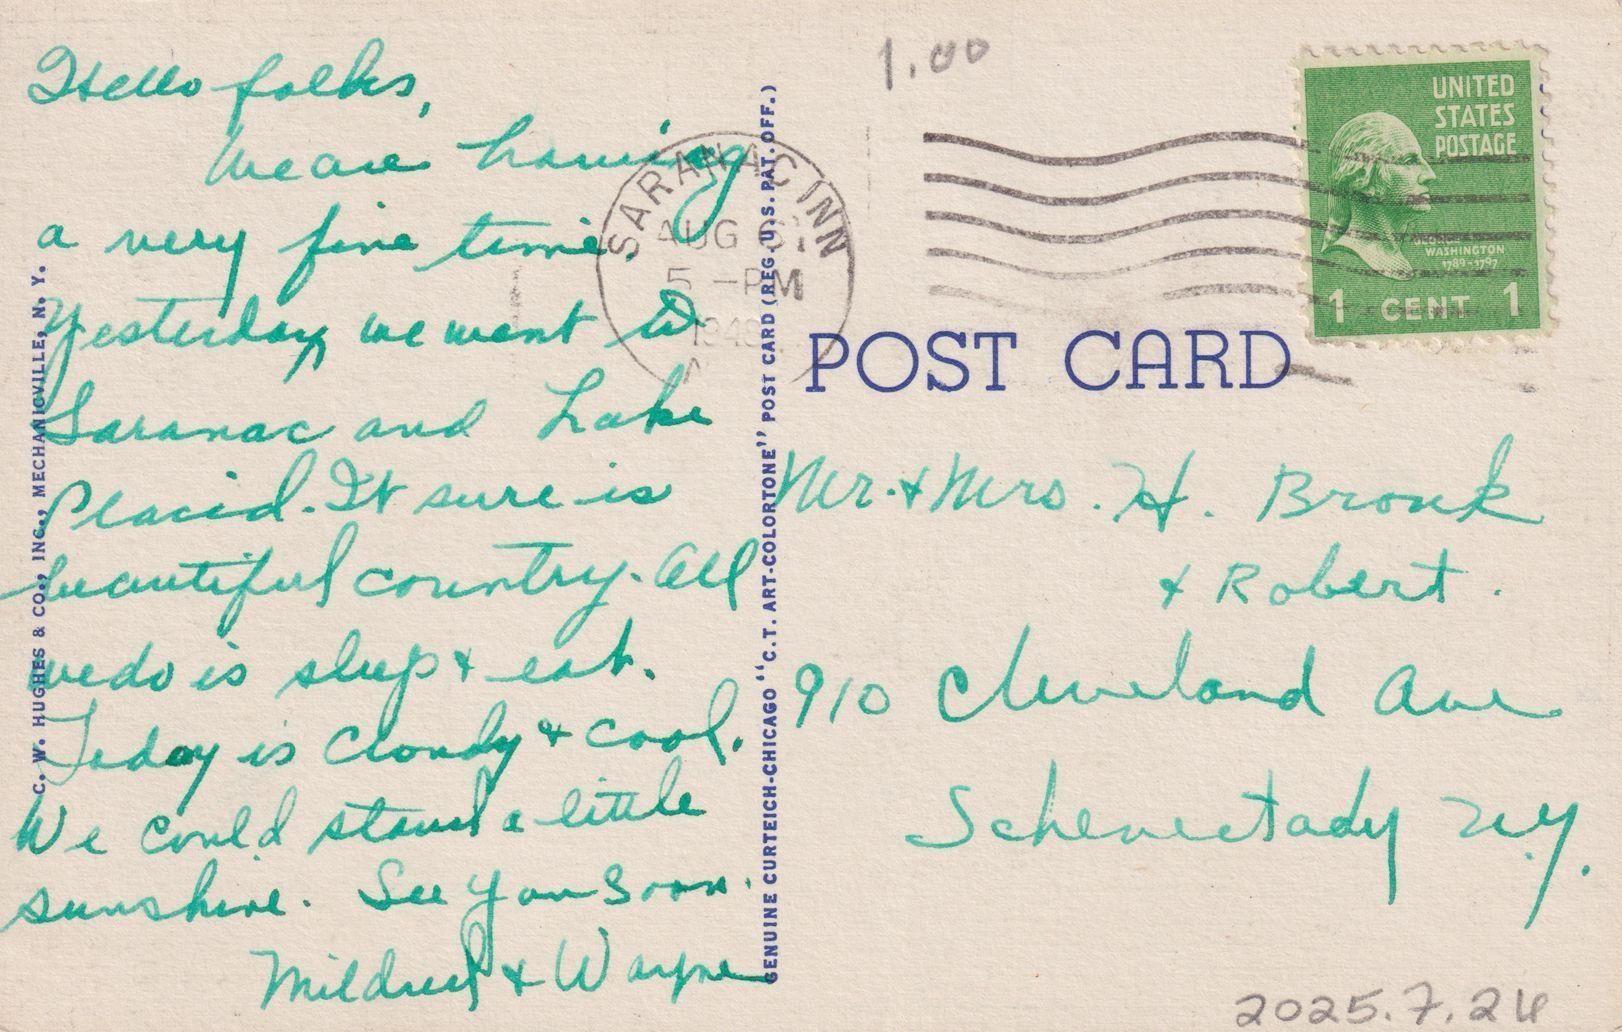 Hello folks,
We are having
a very fine time.
Yesterday we went to
Saranac and Lake
Placid. It sure is
beautiful country. All
we do is sleep & eat.
Today is cloudy & cool.
We could stand a little
sunshine. See you soon.
Mildred & Wayne
C. W. HUGHES & CO., INC., MECHANICVILLE, N. Y.
GENUINE CURTEICH-CHICAGO "C.T. ART-COLORTONE" POST CARD (REG. U.S. PAT. OFF.)
1.00
SARANAC INN
AUG
5 - PM
194
UNITED
STATES
POSTAGE
GEORGE
WASHINGTON
1789-1797
1 CENT 1
POST CARD
Mr. & Mrs. H. Bronk
& Robert.
910 Cleveland Ave
Schenectady N.Y.
2025.7.26